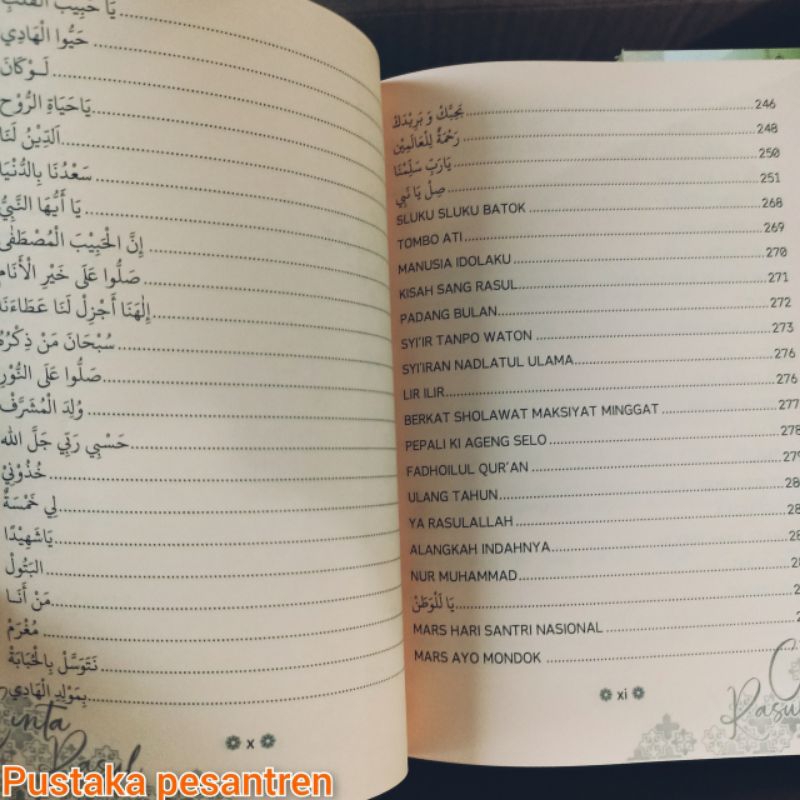 يَا حَبِيْبَ الْقَلْبِ
حَيُّوا الْهَادِي
لَـوْكَانَ
يَاحَيَاةِ الرُّوْحِ
اَلدِّيْنُ لَنَا
سَعْدُنَا بِالدُّنْيَا
يَا أَيُّهَا النَّبِيُّ
إِنَّ الْحَبِيْبَ الْمُصْطَفَى
صَلُّوا عَلَى خَيْرِ الْأَنَام
إِلٰهَنَا أَجْزِلْ لَنَا عَطَاءَنَا
سُبْحَانَ مَنْ ذِكْرُهُ
صَلُّوا عَلَى النُّوْرِ
وُلِدَ الْمُشَرَّفْ
حَسْبِي رَبِّي جَلَّ الله
خُذُوْنِيْ
لِي خَمْسَةٌ
يَاشَهِيْدًا
البَتُوْلْ
مَنْ أَنَـا
مُغْرَمْ
نَتَوَسَّلْ بِالْحُبَابَةْ
بِمَوْلِدِ الْهَادِي
Cinta
Rasul
x
نَحِبَّكْ وَ بَرِيْدَكْ 246
رَحْمَةٌ لِلْعَالَمِيْن 248
يَارَبِّ سَلِّمْنَا 250
صِلْ يَا نَبِي 251
SLUKU SLUKU BATOK 268
TOMBO ATI 269
MANUSIA IDOLAKU 270
KISAH SANG RASUL 271
PADANG BULAN 272
SYI'IR TANPO WATON 273
SYI'IRAN NADLATUL ULAMA 276
LIR ILIR 276
BERKAT SHOLAWAT MAKSIYAT MINGGAT 277
PEPALI KI AGENG SELO 278
FADHOILUL QUR'AN 279
ULANG TAHUN 28
YA RASULALLAH 28
ALANGKAH INDAHNYA 28
NUR MUHAMMAD 28
يَا لَلْوَطَنْ 2
MARS HARI SANTRI NASIONAL 2
MARS AYO MONDOK
xi
C
Rasul
Pustaka pesantren